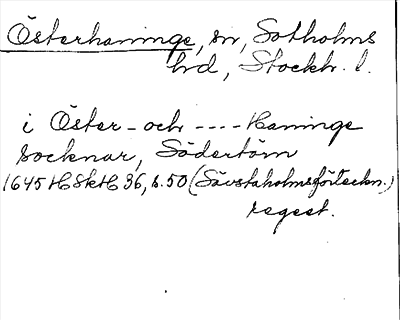 Österhaninge, sn, Sotholms
hd, Stockh. l.
i Öster - och ---- Haninge
socknar, Södertörn
1645 HSkH 36, s. 50 (Sävstaholmsförteckn.)
regest.